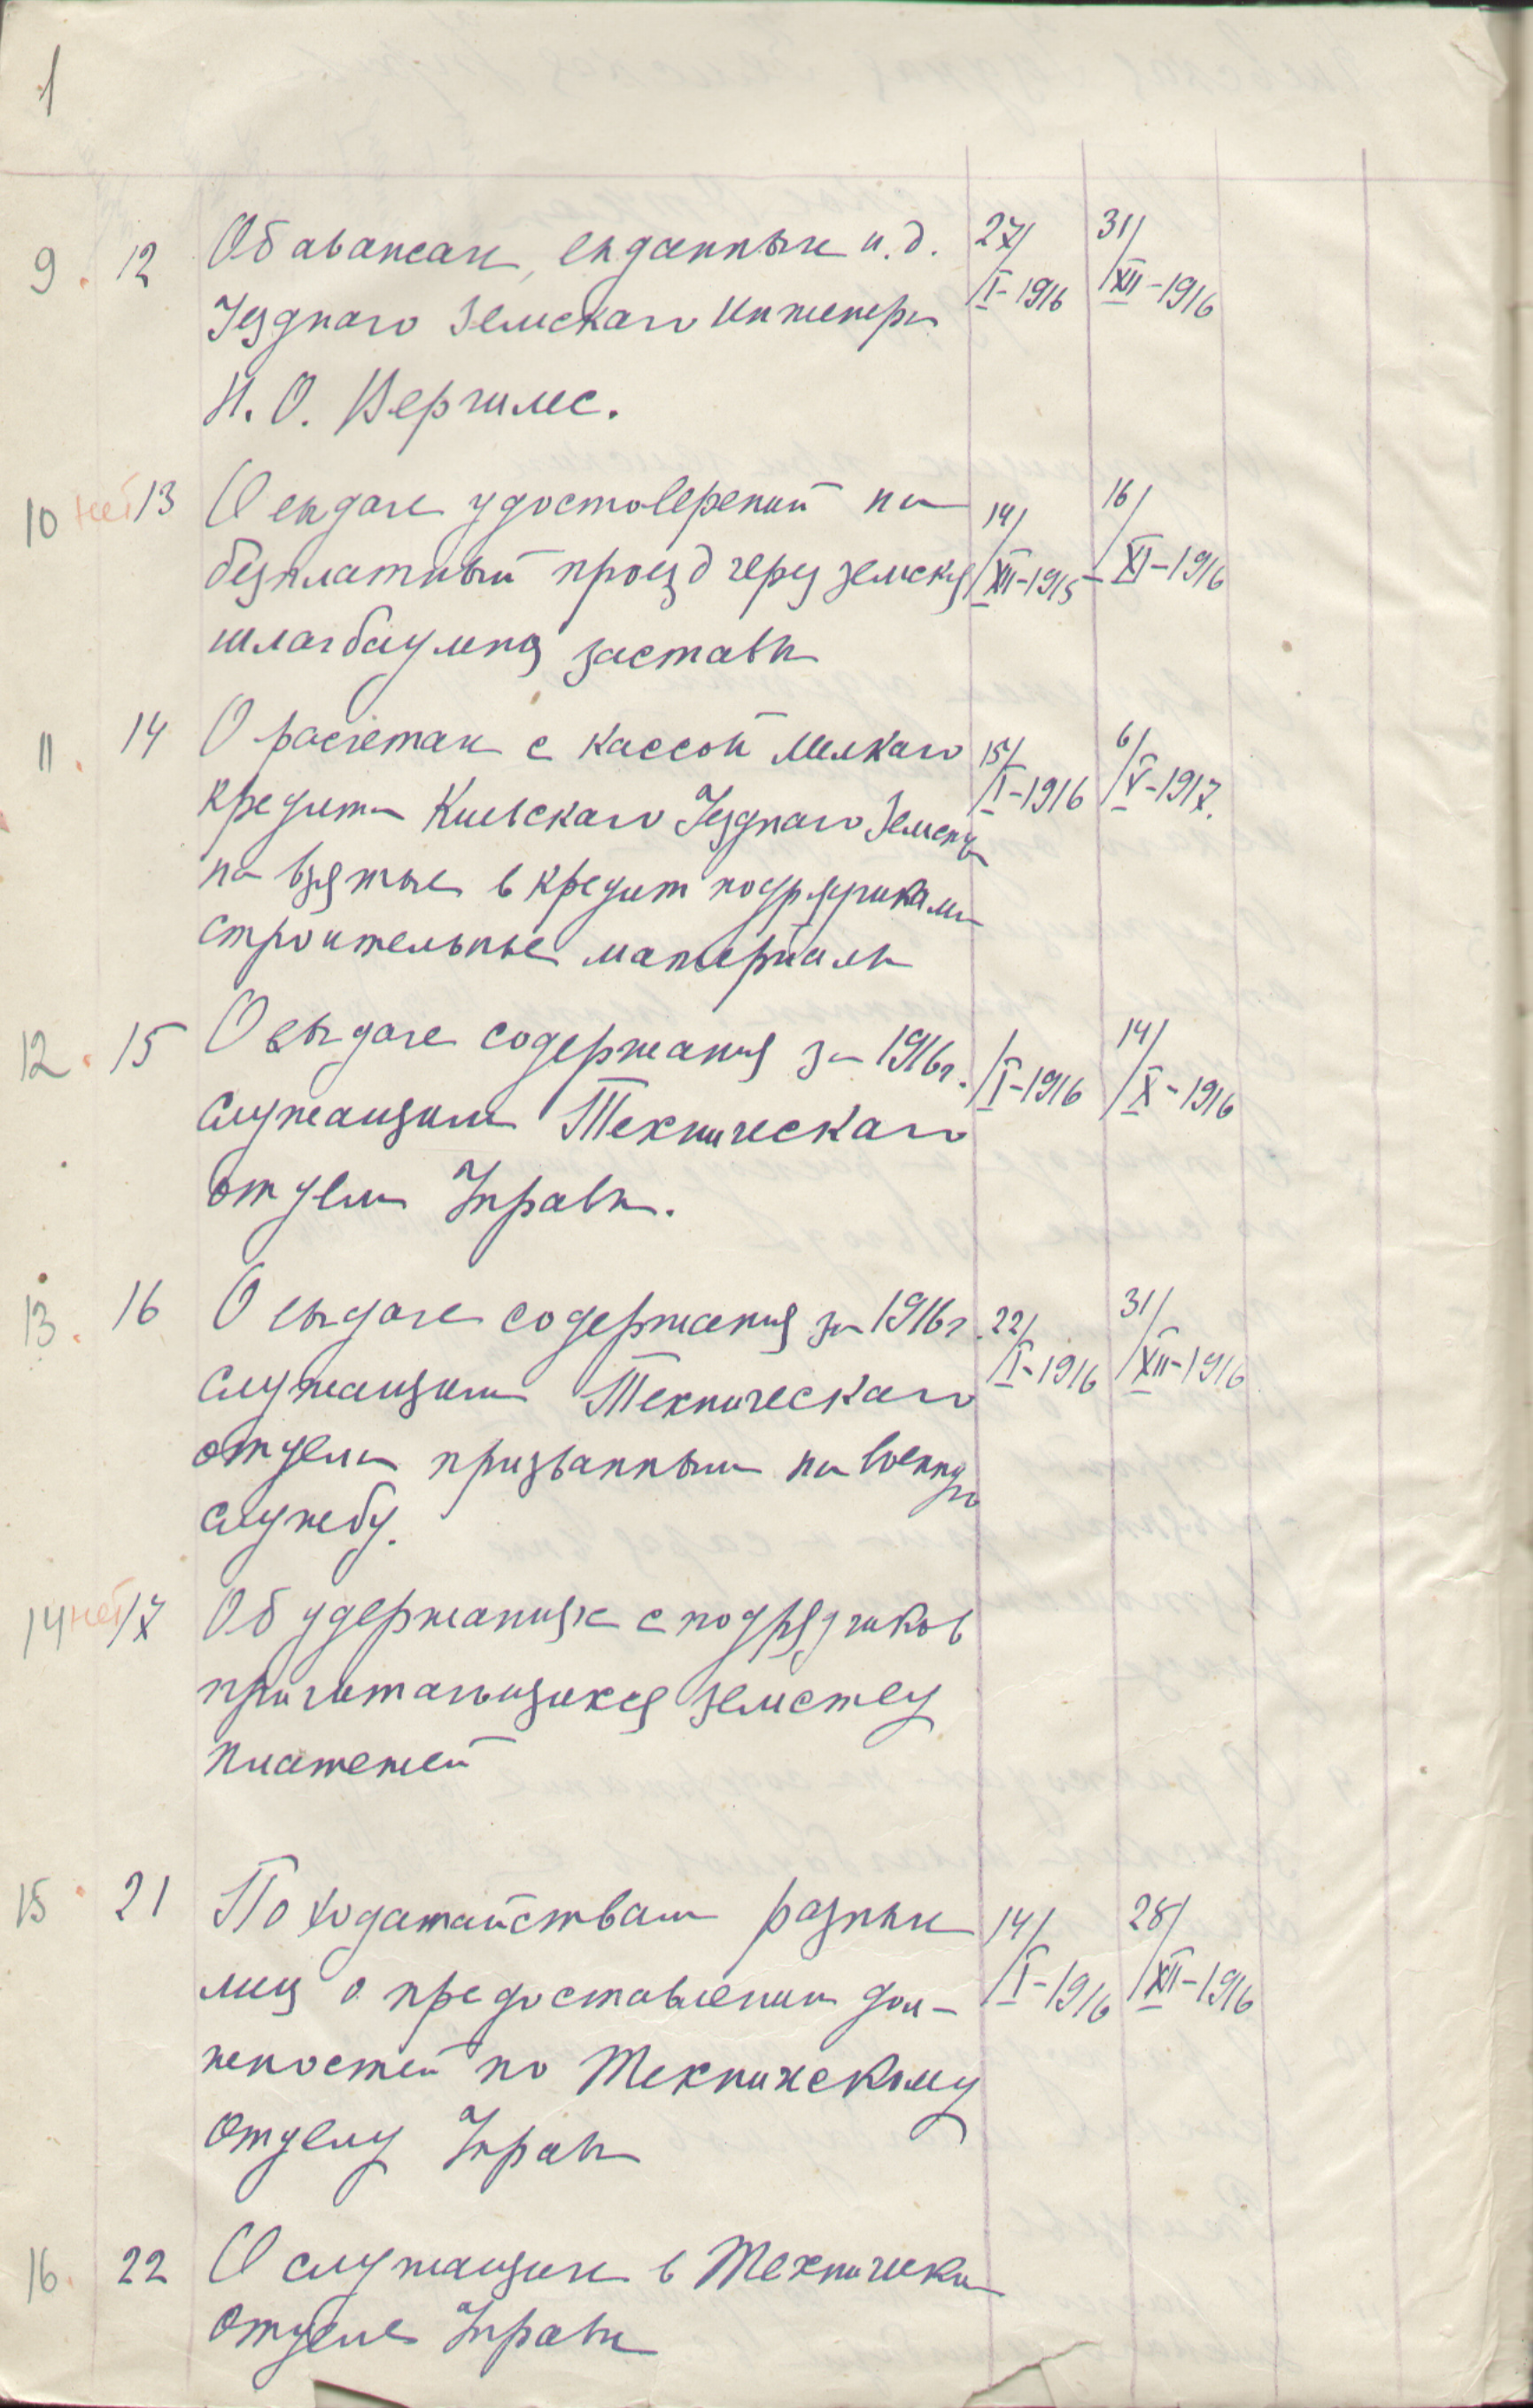 1
9. 12 Об авансах, выданных и.д. 27/I-1916 31/XII-1916
Уездного Земского Инженера
Н. О. Вергилес.
10 нет 13 О выдаче удостоверений на 14/XII-1915 16/XI-1916
безплатный проезд через земския
шлагбаумныя заставы
11. 14 О расчетах с кассой Мелкаго 15/I-1916 6/V-1917.
кредита Киевскаго Уезднаго Земства
на взятые в кредит подрядчиками
строительные материалы
12. 15 О выдаче содержания за 1916г. /I-1916 14/X-1916
служащим Техническаго
отдела Управы.
13. 16 О выдаче содержания за 1916г. 22/I-1916 31/XII-1916
служащим Техническаго
отдела призванным на военную
службу.
14 нет 17 Об удержаниях с подрядчиков
причитающихся земству
платежей
15. 21 По ходатайствам разных 14/I-1916 28/XII-1916
лиц о предоставлении дол-
жностей по Техническому
отделу Управы
16. 22 О служащих в Техническом
отделе Управы